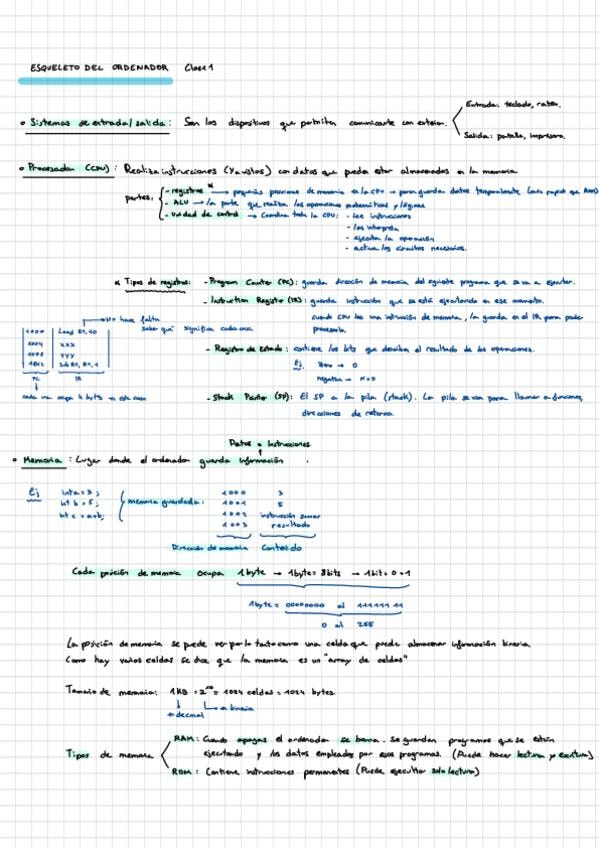 ESQUELETO DEL ORDENADOR Clase 1
Entrada: teclado, ratón.
• Sistemas de entrada/salida: Son los dispositivos que permiten comunicarte con exterior.
Salida: pantalla, impresora.
• Procesador (CPU): Realiza instrucciones (ya vistos) con datos que pueden estar almacenados en la memoria
partes:
- registros * → pequeñas porciones de memoria en la CPU → para guardar datos temporalmente (más rápido que RAM)
- ALU → la parte que realiza las operaciones matemáticas y lógicas
- Unidad de control → Coordina toda la CPU: - lee instrucciones
- las interpreta
- ejecuta la operación
- activa los circuitos necesarios.
* Tipos de registros: - Program Counter (PC): guarda dirección de memoria del siguiente programa que se va a ejecutar.
- Instruction Register (IR): guarda instrucción que se está ejecutando en ese momento.
cuando CPU lee una instrucción de memoria, la guarda en el IR para poder
procesarla.
no hace falta
saber qué significa cada una
1000 Load R1, 10
1004 XXX
1008 YYY
1012 Sub R1, R1, 1
PC IR
cada una ocupa 4 bytes en este caso
- Registro de Estado: contiene los bits que describen el resultado de las operaciones.
Ej. Zero → 0
negativo → N=0
- Stack Pointer (SP): El SP a la pila (stack). La pila se usa para llamar a funciones,
direcciones de retorno.
Datos o Instrucciones
• Memoria: Lugar donde el ordenador guarda información.
Ej int a = 3;
int b = 5;
int c = a+b;
memoria guardada:
1000 3
1001 5
1002 instrucción sumar
1003 resultado
Dirección de memoria Contenido
Cada posición de memoria ocupa 1 byte → 1 byte = 8 bits → 1 bit = 0 o 1
1 byte = 00000000 al 11111111
0 al 255
La posición de memoria se puede ver por lo tanto como una celda que puede almacenar información binaria.
Como hay varias celdas se dice que la memoria es un "array de celdas"
Tamaño de memoria: 1KB = 2¹⁰ = 1024 celdas = 1024 bytes.
decimal
binaria
Tipos de memoria
RAM: Cuando apagas el ordenador se borra. Se guardan programas que se están
ejecutando y los datos empleados por esos programas. (Puede hacer lectura y escritura)
ROM: Contiene instrucciones permanentes (Puede ejecutar solo lectura)